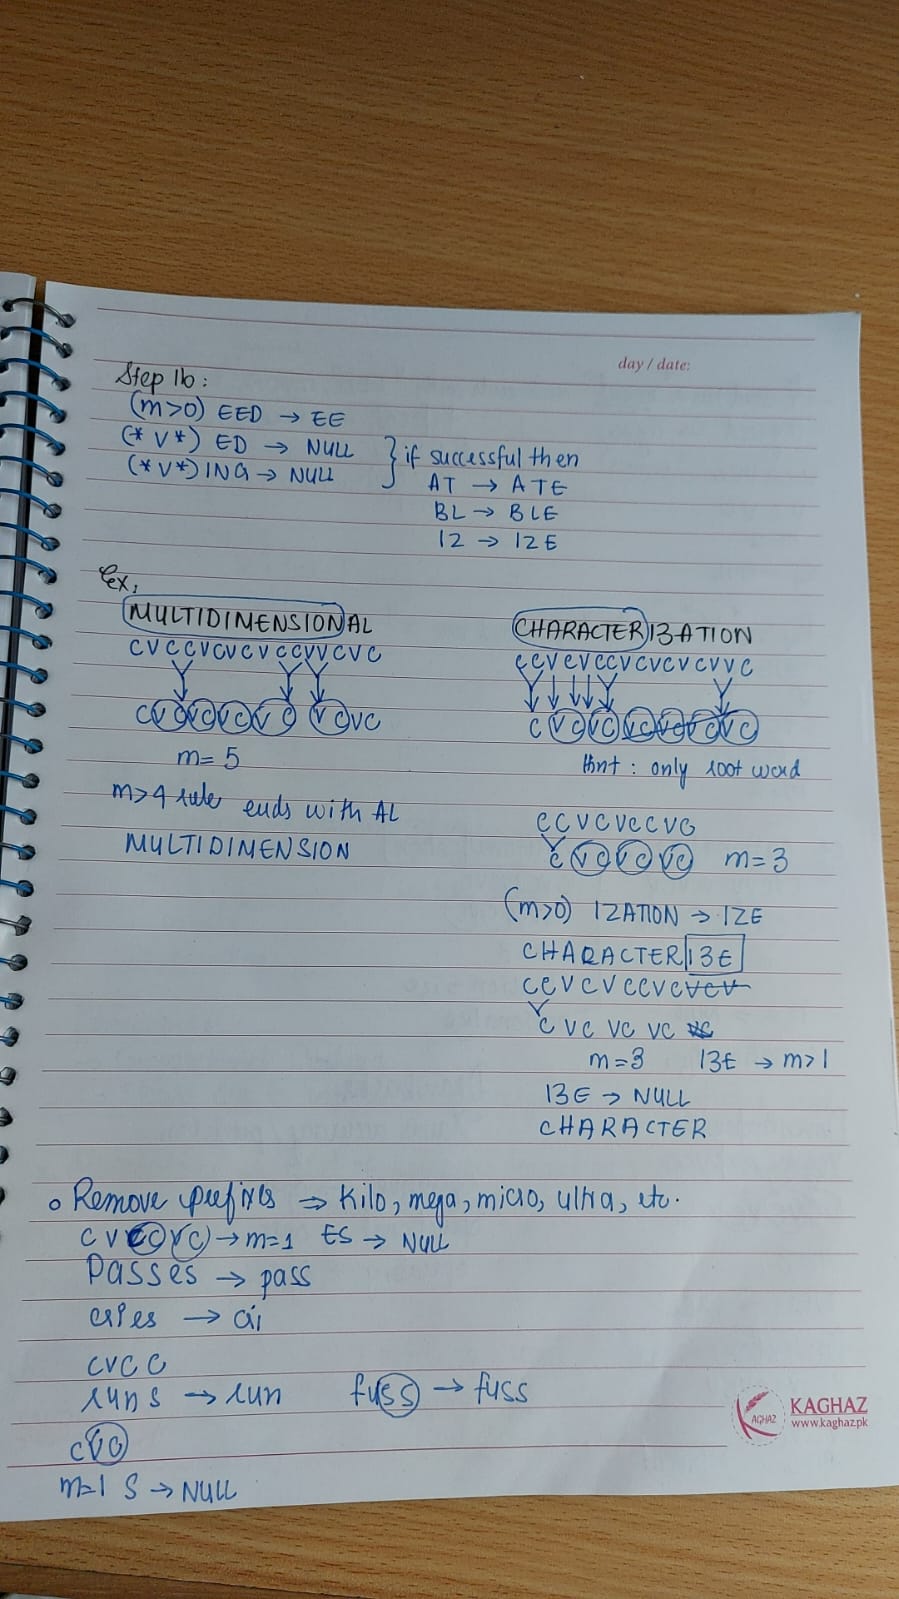 day / date:
Step 1b:
(m>0) EED → EE
(*V*) ED → NULL
(*V*) ING → NULL
} if successful then
AT → ATE
BL → BLE
IZ → IZE
Ex,
MULTIDIMENSIONAL
CVCCVCVCVCCVVCVC
m= 5
m>4 rule ends with AL
MULTIDIMENSION
CHARACTERIZATION
Hint : only root word
CCVCVCCVC
C VC VC VC m= 3
(m>0) IZATION → IZE
CHARACTERIZE
CCVCVCCVCVCV
C VC VC VC
m=3 IZE → m>1
IZE → NULL
CHARACTER
o Remove prefixes ⇒ Kilo, mega, micro, ultra, etc.
→ m=1 ES → NULL
Passes → pass
CVCC
runs → run fuss → fuss
CVC
m=1 S → NULL
KAGHAZ
KAGHAZ
www.kaghaz.pk